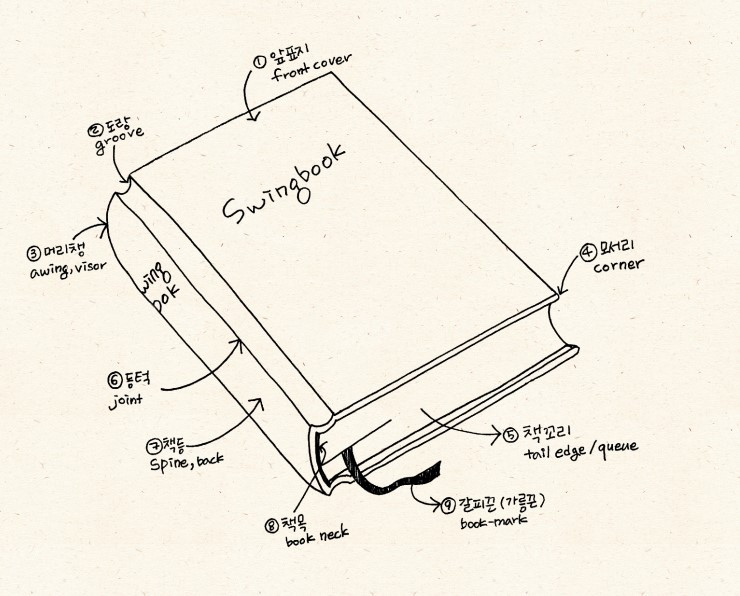 ① 앞표지
front cover
② 도랑
groove
Swingbook
③ 머리챙
awing, visor
wing
book
④ 모서리
corner
⑥ 등턱
joint
⑦ 책등
Spine, back
⑤ 책꼬리
tail edge/queue
⑧ 책목
book neck
⑨ 갈피끈 (가름끈)
book-mark